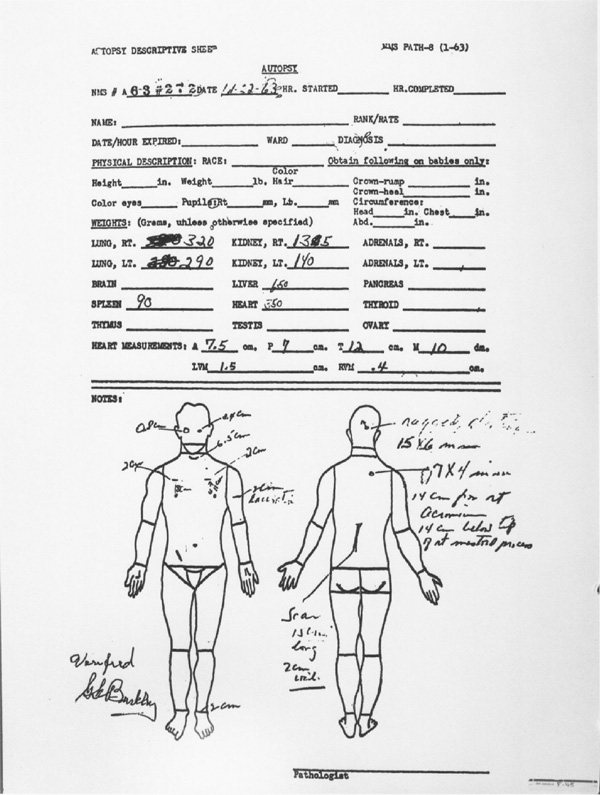 AUTOPSY DESCRIPTIVE SHEET NMS PATH-8 (1-63)
AUTOPSY
NMS # A 63 #272 DATE 11-22-63 HR. STARTED HR. COMPLETED
NAME: RANK/RATE
DATE/HOUR EXPIRED: WARD DIAGNOSIS
PHYSICAL DESCRIPTION: RACE: Obtain following on babies only:
Color
Height in. Weight lb. Hair Crown-rump in.
Crown-heel in.
Color eyes Pupils: Rt mm, Lt. mm Circumference:
Head in. Chest in.
WEIGHTS: (Grams, unless otherwise specified) Abd. in.
LUNG, RT. 320 KIDNEY, RT. ADRENALS, RT.
LUNG, LT. 290 KIDNEY, LT. 140 ADRENALS, LT.
BRAIN LIVER 650 PANCREAS
SPLEEN 90 HEART 350 THYROID
THYMUS TESTIS OVARY
HEART MEASUREMENTS: A 7.5 cm. P 7 cm. T 12 cm. M 10 cm.
LVM 1.5 cm. RVM .4 cm.
NOTES:
6.5cm
ragged
15 X 6 mm
2cm
2cm
7 X 4 mm
14 cm from rt
acromion
14 cm below tip
of rt mastoid process
Scar
long
2cm
Verified
GGBurkley
2cm
Pathologist